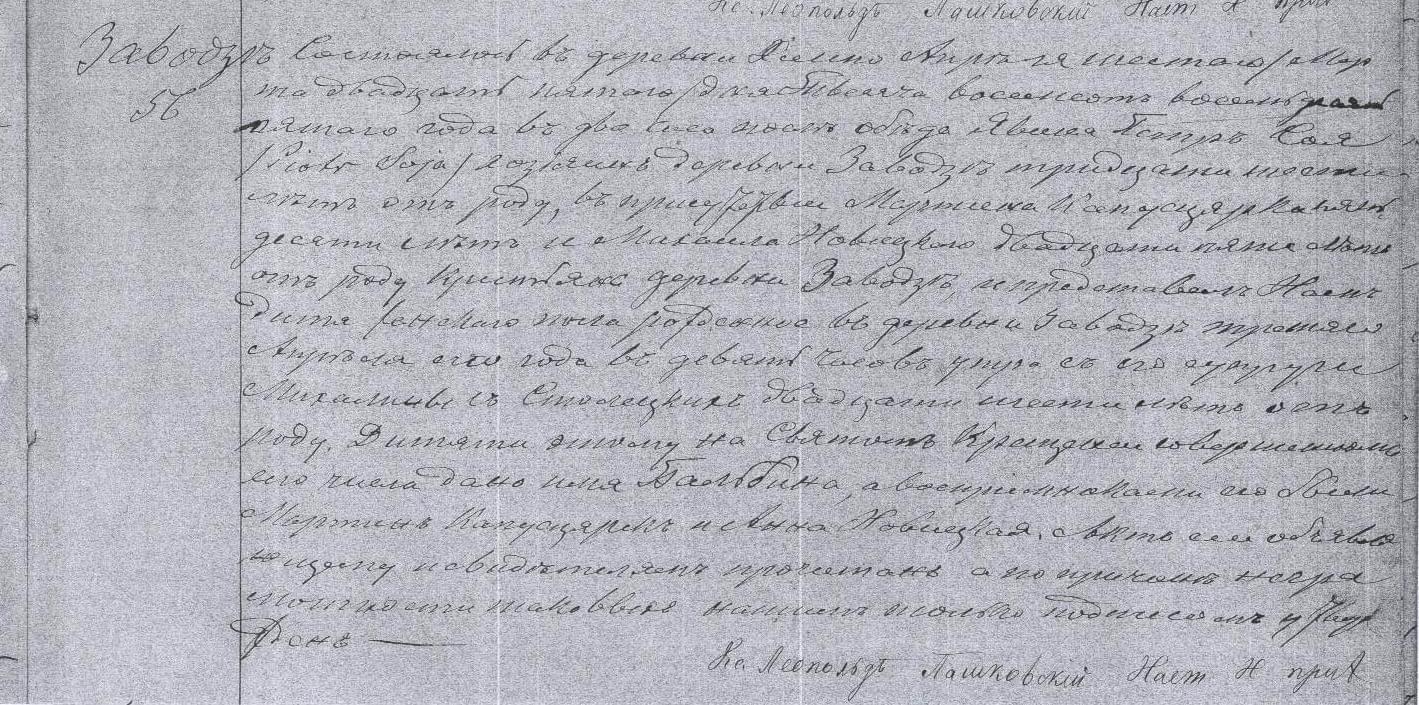 Кс. Леопольдъ Пашковскій Наст Н при
Заводзъ Состоялось въ деревни Апрѣля шестаго /Мар
56 та двадцать пятаго/ дня Тысяча восемсотъ восемьдесятъ
пятаго года въ два часа послѣ обѣда Явился Петръ Соя
/Piotr Soja/ деревни Заводзѣ тридцати шести
лѣтъ отъ роду, въ присутствіи Мартина Капусцярка пять
десяти лѣтъ и Михаила Новицкого двадцати пяти лѣтъ
отъ роду крестьянъ деревни Заводзѣ, и представилъ Намъ
Дитя женскаго пола рожденное въ деревни Заводзѣ третяго
Апрѣля сего года въ девять часовъ утра съ его супруги
Михалины съ двадцати шести лѣтъ отъ
роду. Дитяти этому на Святомъ Крещеніи совершенномъ
сего числа дано имя Бальбина, а воспріемниками его были
Мартинъ Капусцярекъ и Анна Новицкая. Актъ сей объявля
ющему и свидѣтелямъ прочитанъ а по причинѣ негра
мотности таковыхъ нашимъ только подписомъ утвер
жденъ —
Кс. Леопольдъ Пашковскій Наст Н при